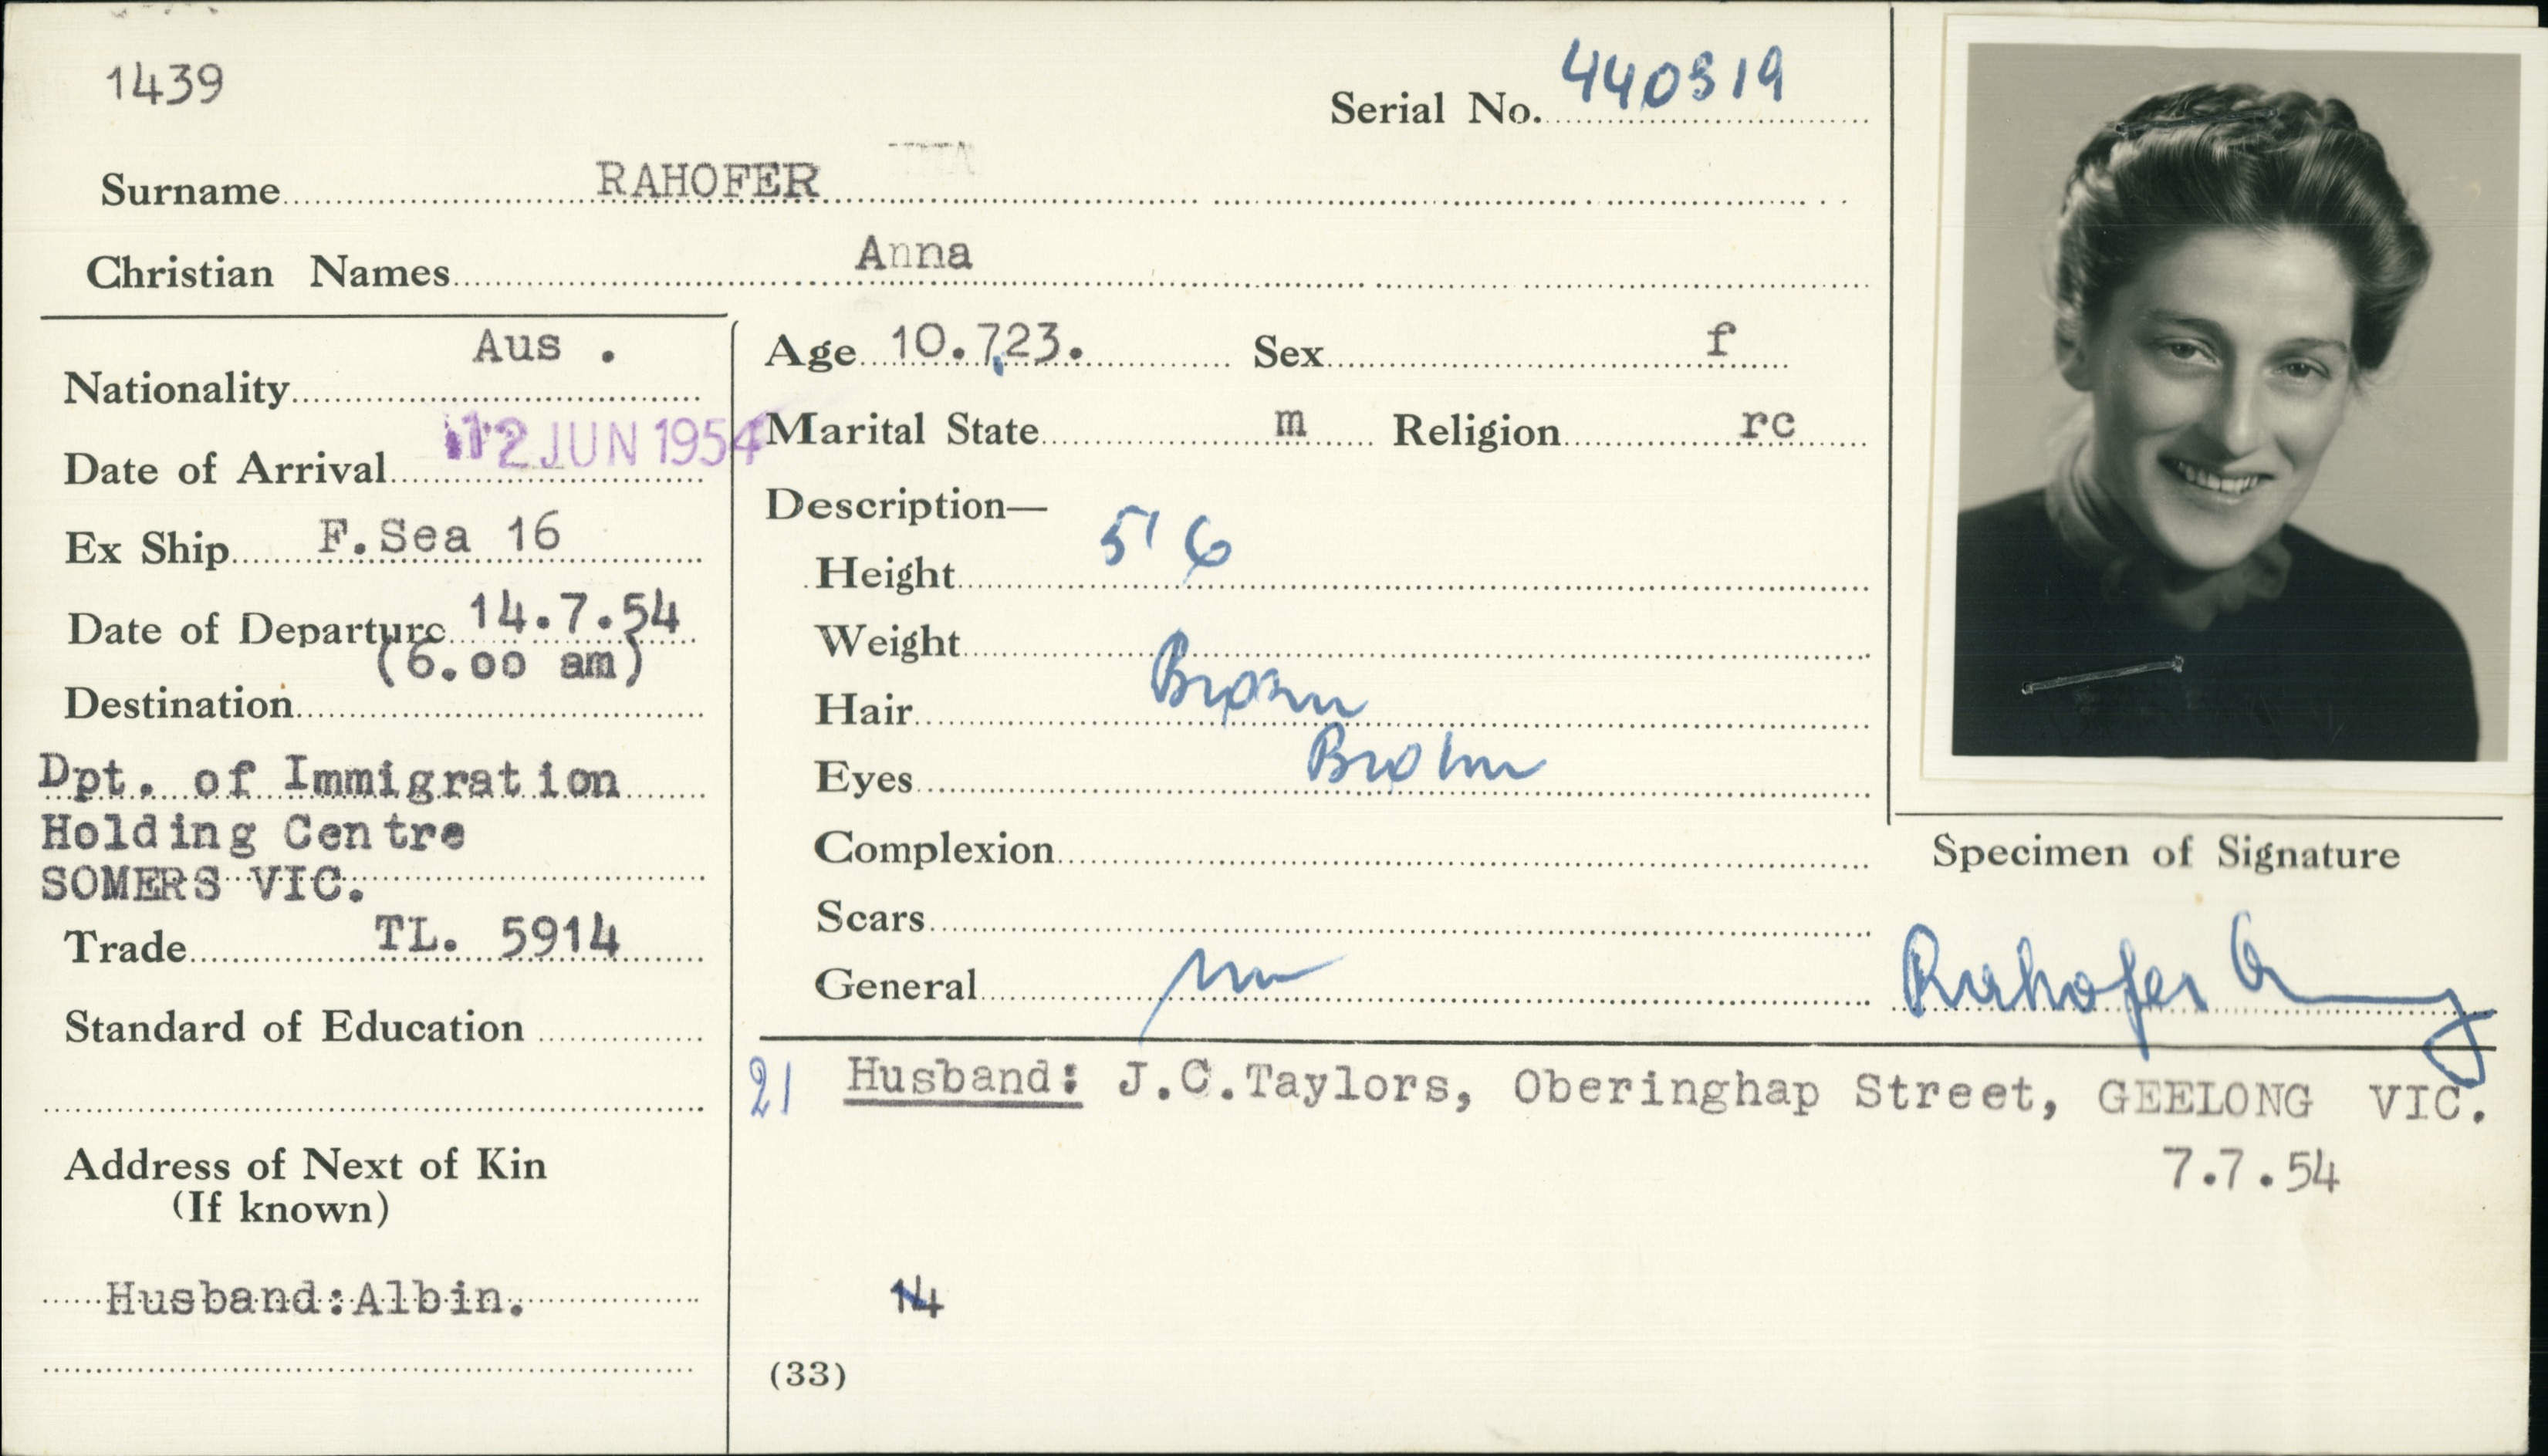 1439
Serial No. 440319
Surname RAHOFER
Christian Names Anna
Nationality Aus .
Date of Arrival 12 JUN 1954
Ex Ship F.Sea 16
Date of Departure 14.7.54
(6.00 am)
Destination
Dpt. of Immigration
Holding Centre
SOMERS VIC.
Trade TL. 5914
Standard of Education
Address of Next of Kin
(If known)
Husband:Albin.
Age 10.7.23. Sex f
Marital State m Religion rc
Description—
Height 5' 6
Weight
Hair Brown
Eyes Brown
Complexion
Scars
General
Specimen of Signature
Rahofer
21 Husband: J.C.Taylors, Oberinghap Street, GEELONG VIC.
7.7.54
14
(33)